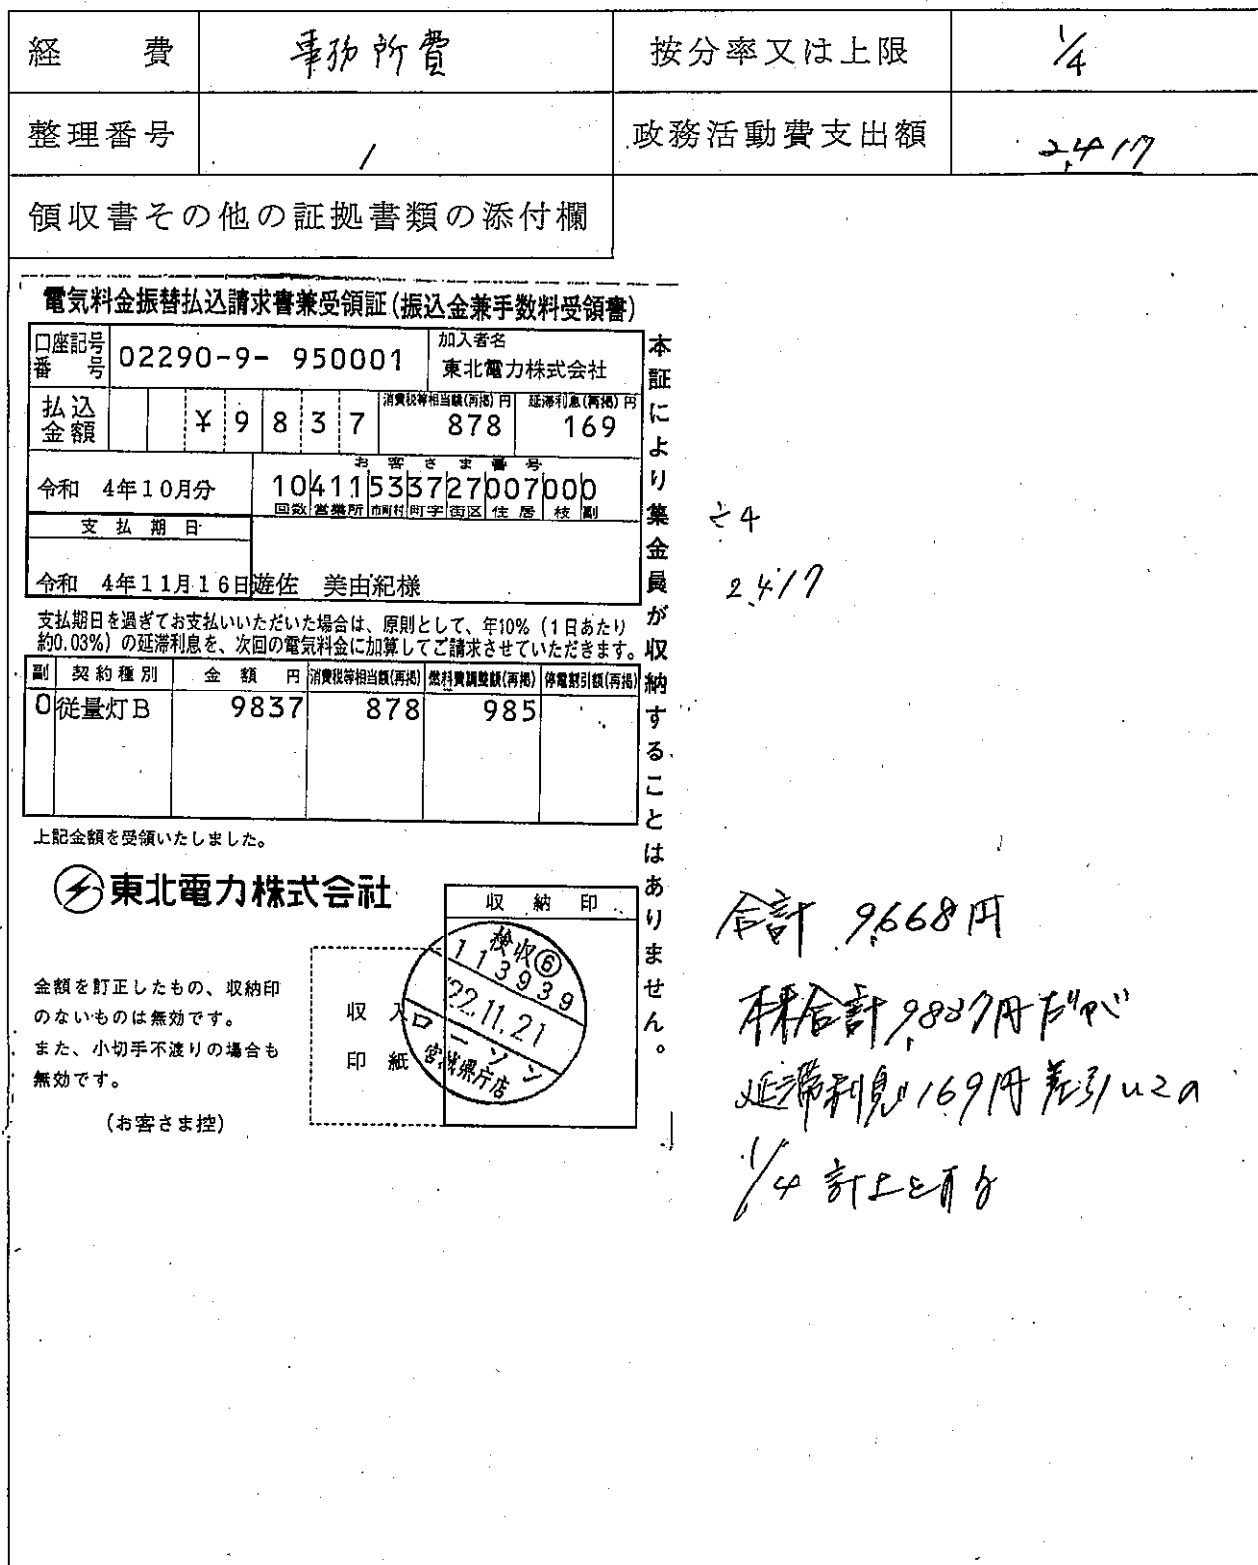 経 費 事務所費 按分率又は上限 1/4
整理番号 1 政務活動費支出額 2,417
領収書その他の証拠書類の添付欄
電気料金振替払込請求書兼受領証(振込金兼手数料受領書)
口座記号番号 02290-9- 950001 加入者名 東北電力株式会社
払込金額 ¥9837 消費税等相当額(再掲)円 878 延滞利息(再掲)円 169
お客さま番号
令和 4年10月分 10 411 533 37 27 007 000
回数 営業所 市町村 町字 街区 住居 枝 副
支払期日
令和 4年11月16日 遊佐 美由紀様
本証により集金員が収納することはありません。
÷4
2,417
支払期日を過ぎてお支払いいただいた場合は、原則として、年10%(1日あたり
約0.03%)の延滞利息を、次回の電気料金に加算してご請求させていただきます。
副 契約種別 金額 円 消費税等相当額(再掲) 燃料費調整額(再掲) 停電割引額(再掲)
0 従量灯B 9837 878 985
上記金額を受領いたしました。
東北電力株式会社
収納印
検収⑥
113939
'22.11.21
ローソン
宮城県庁店
収入
印紙
金額を訂正したもの、収納印
のないものは無効です。
また、小切手不渡りの場合も
無効です。
(お客さま控)
合計 9,668円
本来合計9,837円だが
延滞利息169円差引いての
1/4 計上とする